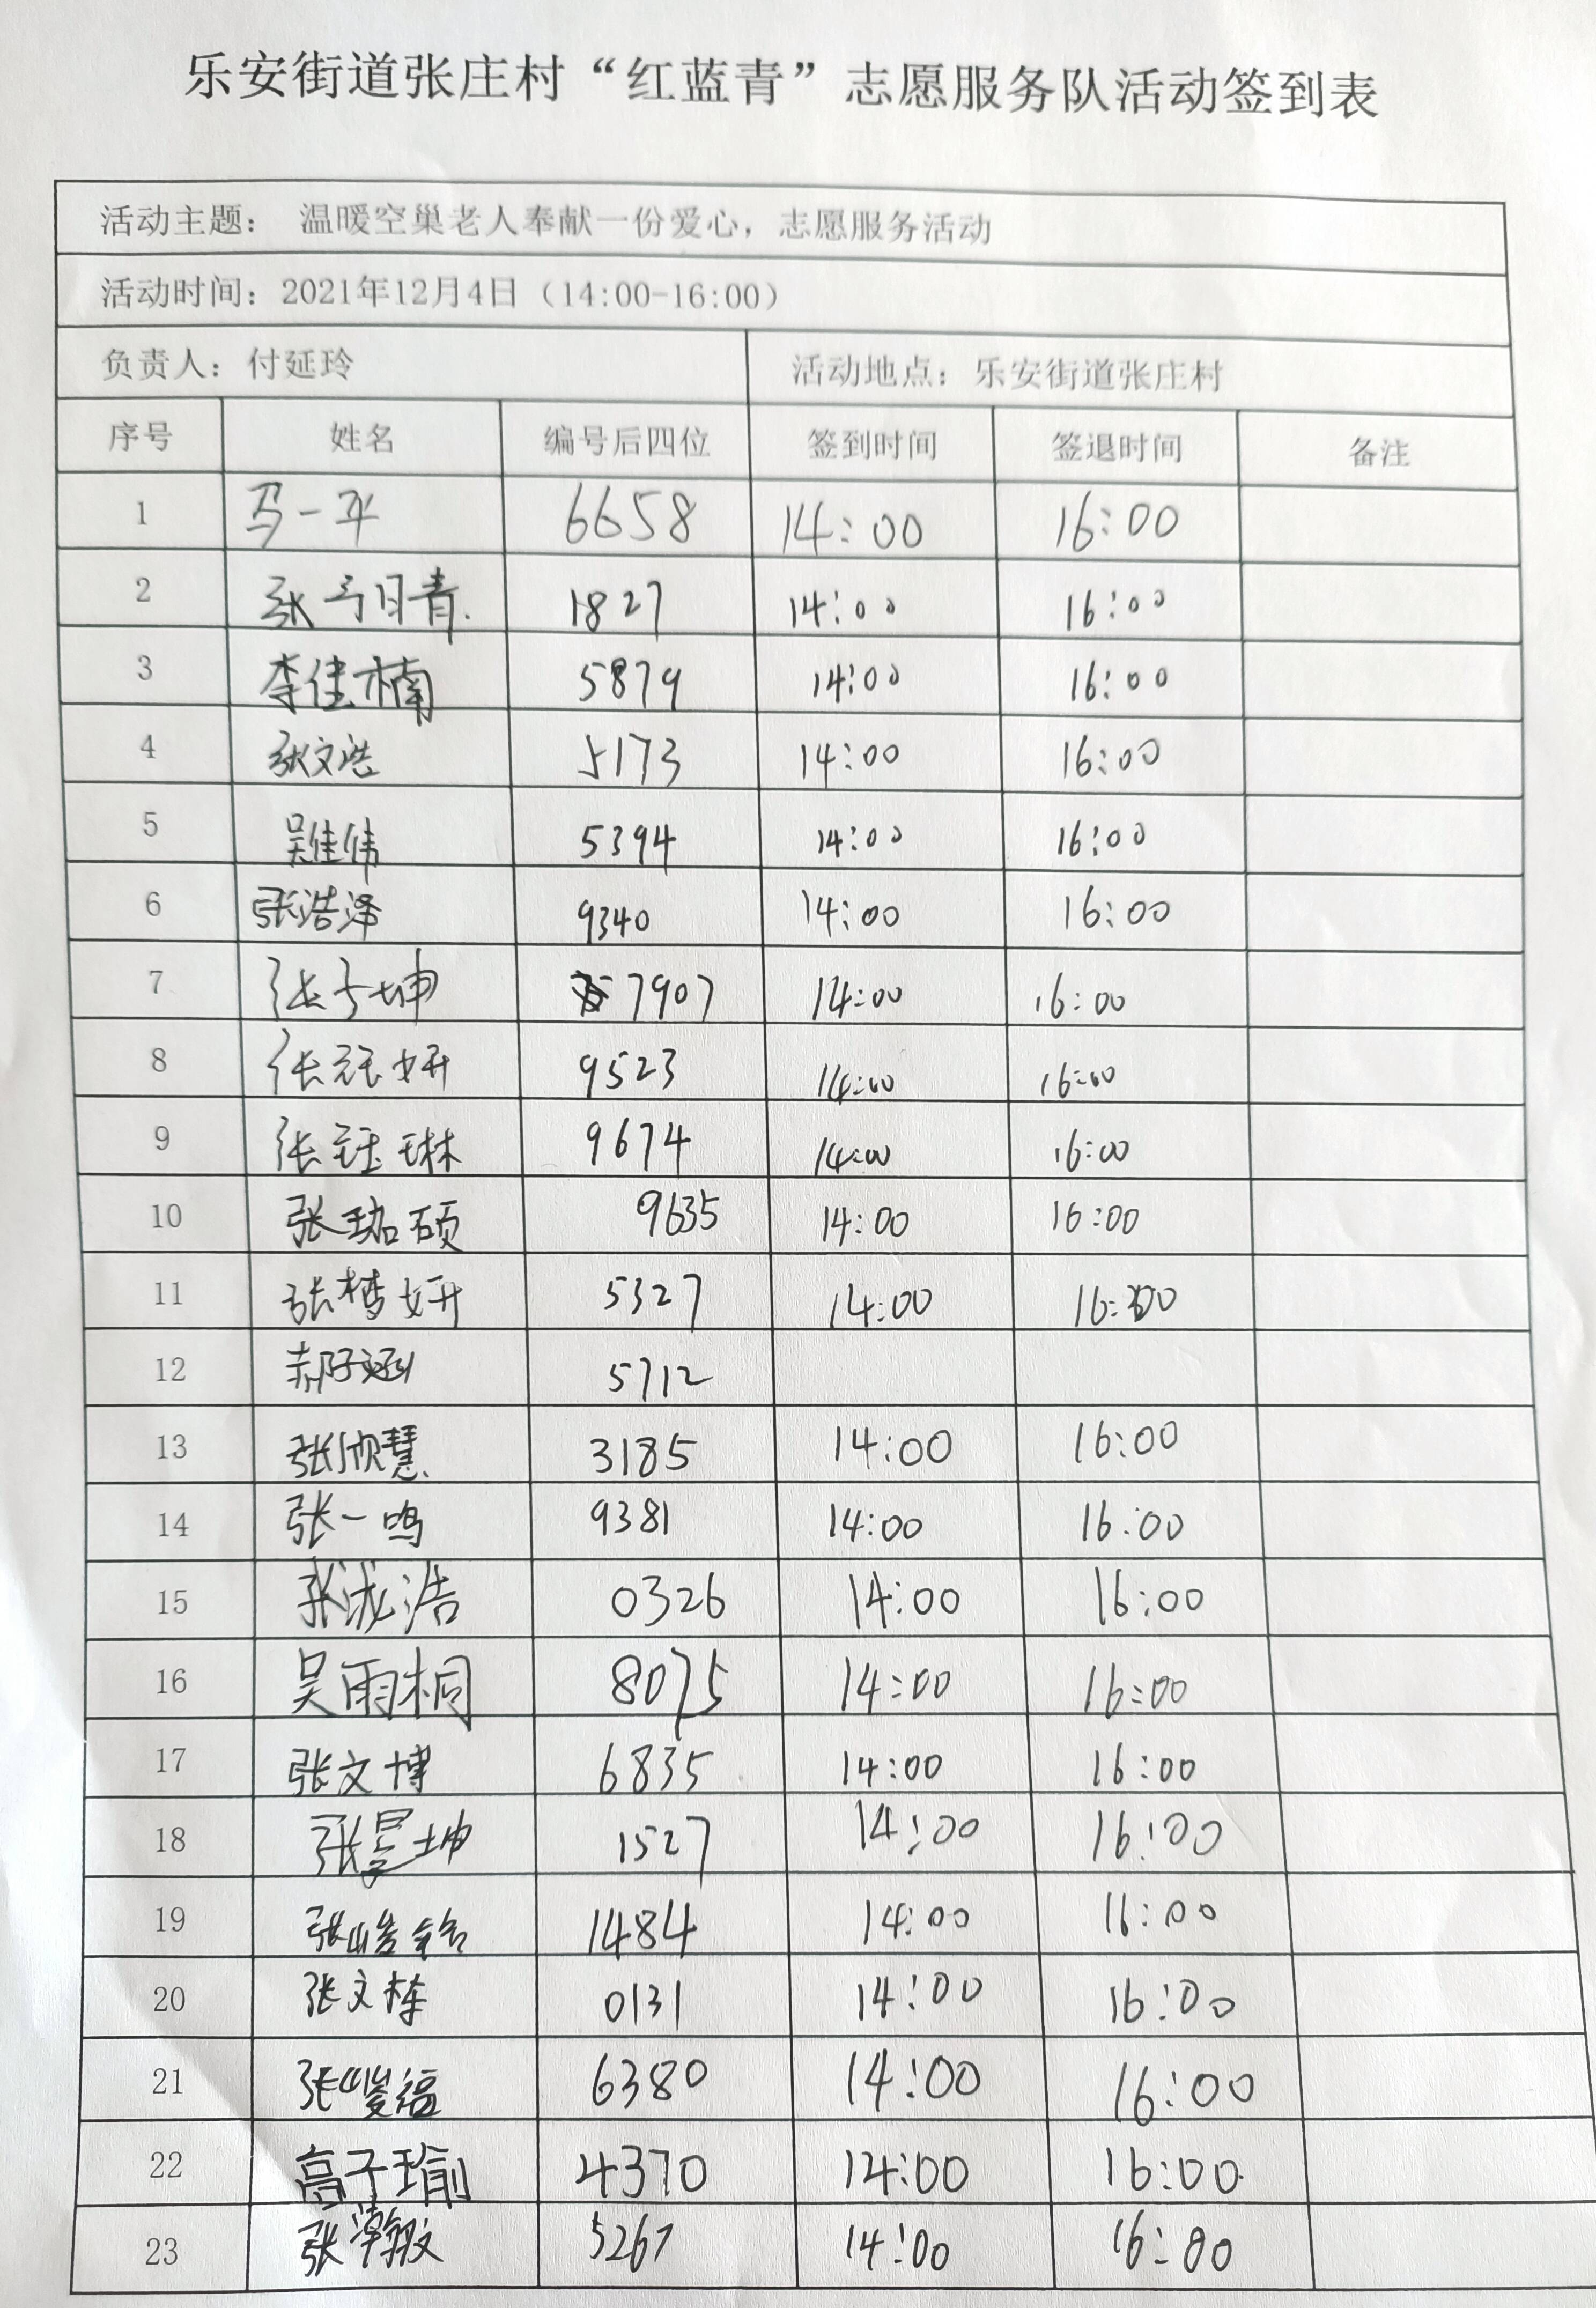 乐安街道张庄村“红蓝青”志愿服务队活动签到表
活动主题： 温暖空巢老人奉献一份爱心，志愿服务活动
活动时间：2021年12月4日（14:00-16:00）
负责人：付延玲 活动地点：乐安街道张庄村
序号 姓名 编号后四位 签到时间 签退时间 备注
1 马一平 6658 14:00 16:00
2 张予晴 1827 14:00 16:00
3 李佳楠 5879 14:00 16:00
4 张文浩 5173 14:00 16:00
5 吴佳伟 5394 14:00 16:00
6 张浩泽 9340 14:00 16:00
7 张子坤 7907 14:00 16:00
8 张 妍 9523 14:00 16:00
9 张钰琳 9674 14:00 16:00
10 张珈硕 9635 14:00 16:00
11 张梦妍 5327 14:00 16:00
12 郝子涵 5712
13 张欣慧 3185 14:00 16:00
14 张一鸣 9381 14:00 16:00
15 张泷浩 0326 14:00 16:00
16 吴雨桐 8075 14:00 16:00
17 张文博 6835 14:00 16:00
18 张 坤 1527 14:00 16:00
19 张 铭 1484 14:00 16:00
20 张文栋 0131 14:00 16:00
21 张峻福 6380 14:00 16:00
22 高子瑜 4370 14:00 16:00
23 张瀚 5267 14:00 16:00